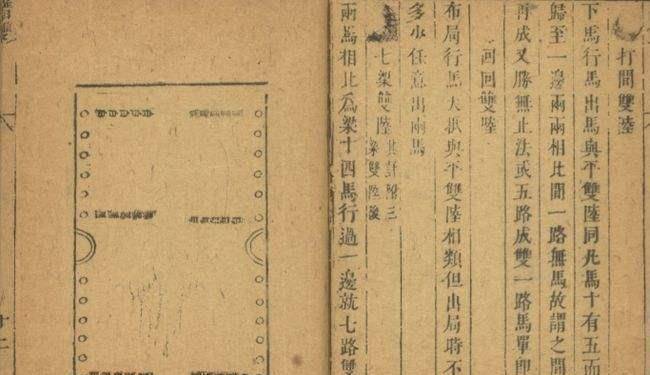 打間雙陸
下馬行馬出馬與平雙陸同凡馬十有五面
歸至一邊兩兩相比間一路無馬故謂之間
再成又勝無止法或五路成雙一路馬單即
回回雙陸
布局行馬大抵與平雙陸相類但出局時不
多少任意出兩馬
七梁雙陸
其計附三
梁雙陸後
兩馬相比爲梁十四馬行過一邊就七路雙
十二